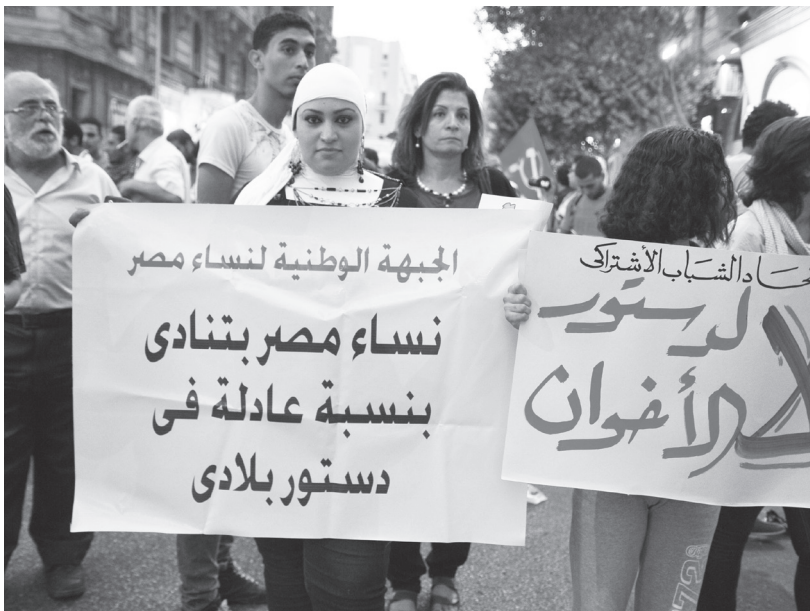 الجبهة الوطنية لنساء مصر
نساء مصر بتنادى
بنسبة عادلة فى
دستور بلادى
الشباب الأشتراكى
لا لدستور
الأخوان